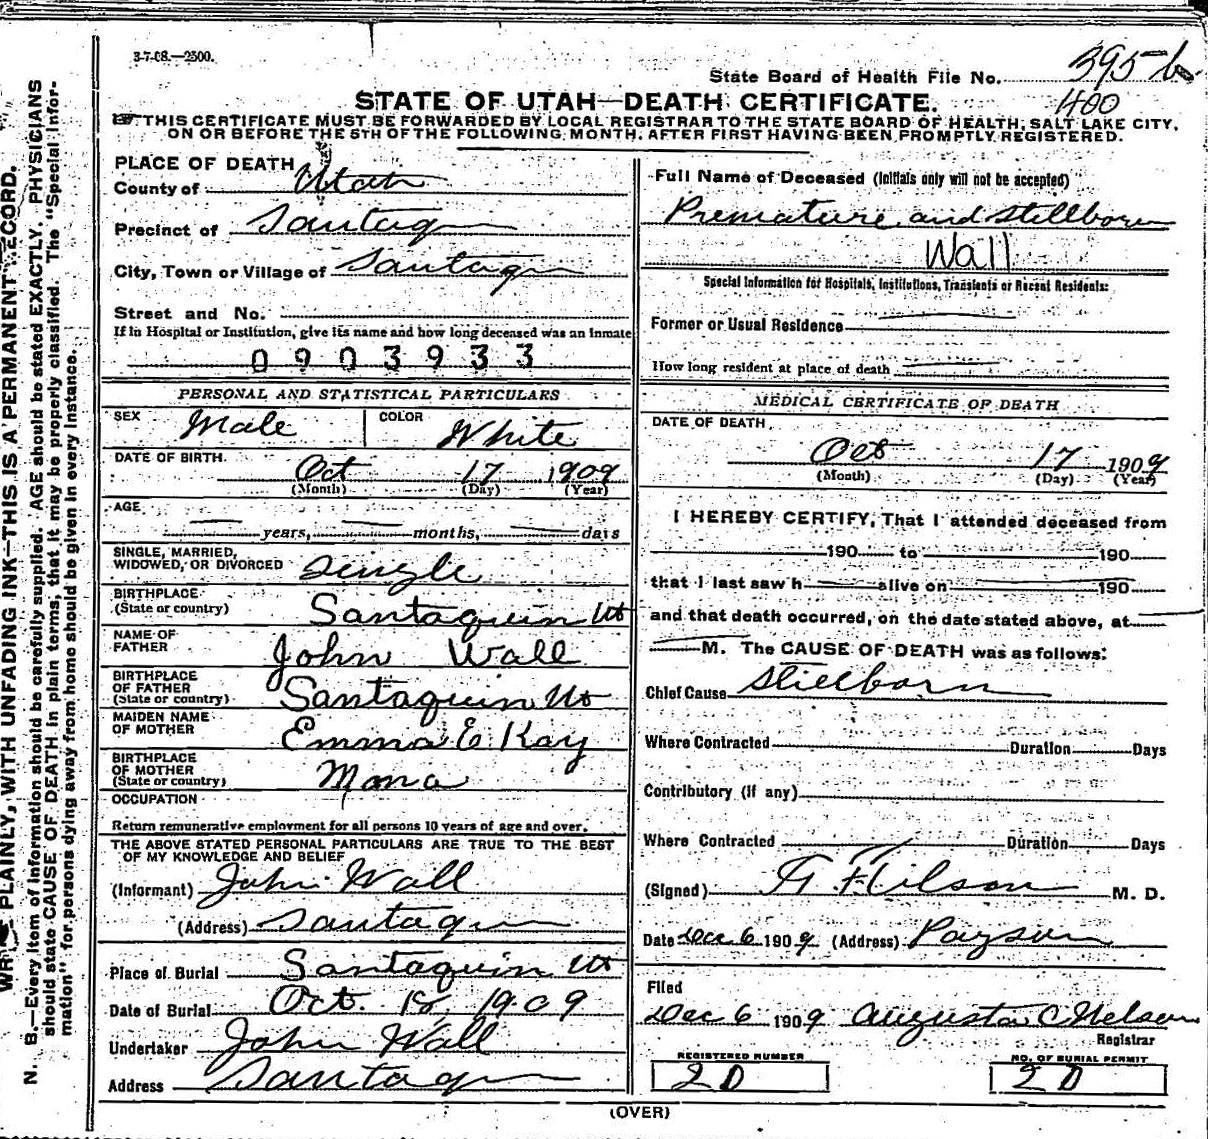 3-7-08.—2500.
State Board of Health File No. 395-b
400
STATE OF UTAH—DEATH CERTIFICATE.
THIS CERTIFICATE MUST BE FORWARDED BY LOCAL REGISTRAR TO THE STATE BOARD OF HEALTH, SALT LAKE CITY,
ON OR BEFORE THE 5TH OF THE FOLLOWING MONTH, AFTER FIRST HAVING BEEN PROMPTLY REGISTERED.
PLACE OF DEATH
County of Utah
Precinct of Santaquin
City, Town or Village of Santaquin
Street and No.
If in Hospital or Institution, give its name and how long deceased was an inmate
0903933
PERSONAL AND STATISTICAL PARTICULARS
SEX Male COLOR White
DATE OF BIRTH Oct 17 1909
(Month) (Day) (Year)
AGE
years, months, days
SINGLE, MARRIED,
WIDOWED, OR DIVORCED Single
BIRTHPLACE
(State or country) Santaquin Ut
NAME OF
FATHER John Wall
BIRTHPLACE
OF FATHER
(State or country) Santaquin Ut
MAIDEN NAME
OF MOTHER Emma E Kay
BIRTHPLACE
OF MOTHER
(State or country) Mona
OCCUPATION
Return remunerative employment for all persons 10 years of age and over.
THE ABOVE STATED PERSONAL PARTICULARS ARE TRUE TO THE BEST
OF MY KNOWLEDGE AND BELIEF
(Informant) John Wall
(Address) Santaquin
Place of Burial Santaquin Ut
Date of Burial Oct. 18, 1909
Undertaker John Wall
Address Santaquin
Full Name of Deceased (Initials only will not be accepted)
Premature and Stillborn
Wall
Special Information for Hospitals, Institutions, Transients or Recent Residents:
Former or Usual Residence
How long resident at place of death
MEDICAL CERTIFICATE OF DEATH
DATE OF DEATH
Oct 17 1909
(Month) (Day) (Year)
I HEREBY CERTIFY, That I attended deceased from
190 to 190
that I last saw h alive on 190
and that death occurred, on the date stated above, at
M. The CAUSE OF DEATH was as follows:
Chief Cause Stillborn
Where Contracted Duration Days
Contributory (if any)
Where Contracted Duration Days
(Signed) M. D.
Date Dec 6 1909 (Address) Payson
Filed
Dec 6 1909 Augusta C Nelson
Registrar
REGISTERED NUMBER
20
NO. OF BURIAL PERMIT
20
(OVER)
PLAINLY, WITH UNFADING INK—THIS IS A PERMANENT RECORD.
N. B.—Every item of information should be carefully supplied. AGE should be stated EXACTLY. PHYSICIANS
should state CAUSE OF DEATH in plain terms, that it may be properly classified. The "Special Infor-
mation" for persons dying away from home should be given in every instance.